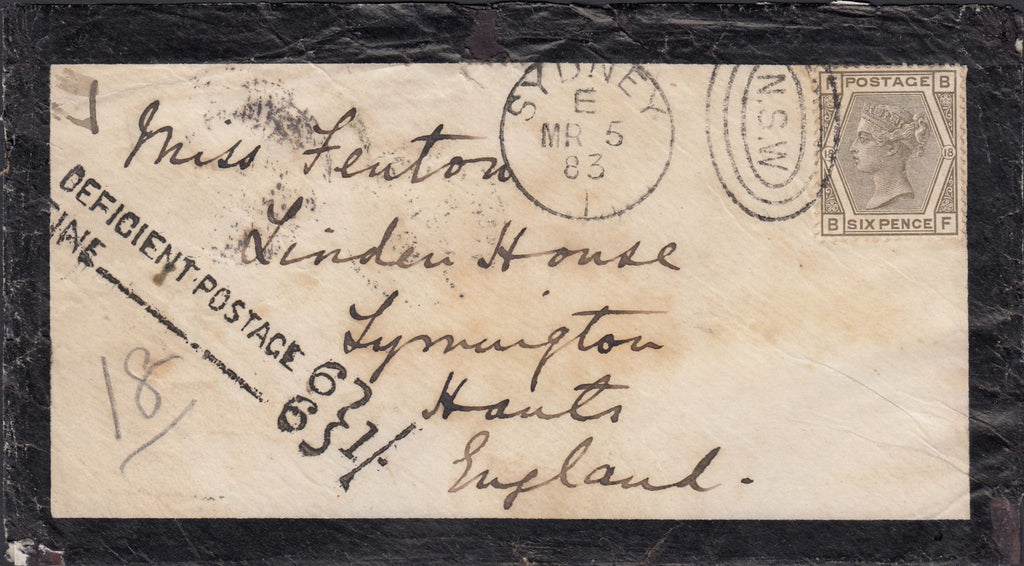 SYDNEY
E
MR 5
83
1
N.S.W
POSTAGE B
18 18
B SIX PENCE F
Miss Fenton
Linden House
Lymington
Hants
England.
DEFICIENT POSTAGE 6
FINE 6 } 1/-
18/